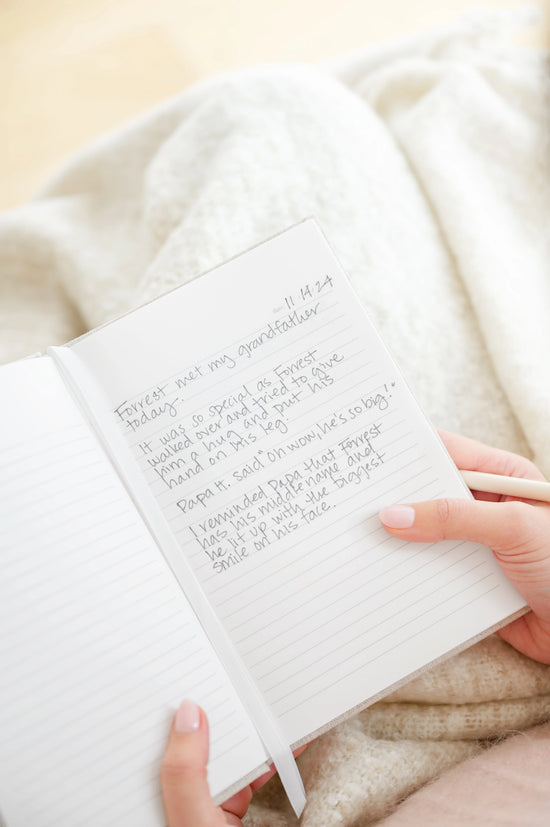 11 19 24
Forrest met my grandfather
today.
It was so special as Forrest
walked over and tried to give
him a hug and put his
hand on his leg.
Papa H. said "oh wow, he's so big!"
I reminded Papa that Forrest
has his middle name and
he lit up with the biggest
smile on his face.